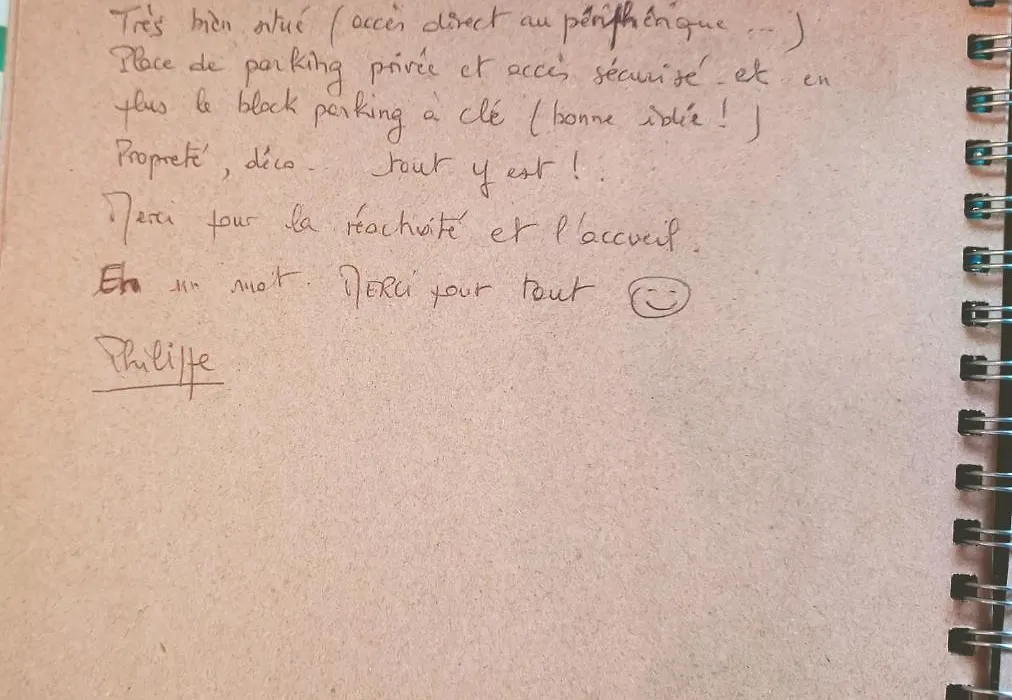 Très bien situé (accès direct au périphérique ...)
Place de parking privée et accès sécurisé et en
plus le block parking à clé (bonne idée !)
Propreté, déco... tout y est !.
Merci pour la réactivité et l'accueil.
En un mot. MERCi pour tout
Philippe